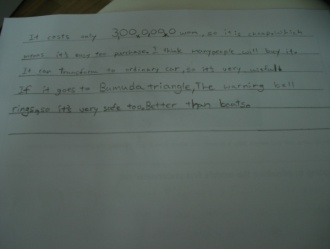 It costs only 300,000,0 won, so it is
means it's easy to purchase. I think many people will buy it.
It can transform to ordinary car, so it's very useful.
If it goes to Bumuda triangle, The warning bell
rings, so it's very safe too. Better than boats.